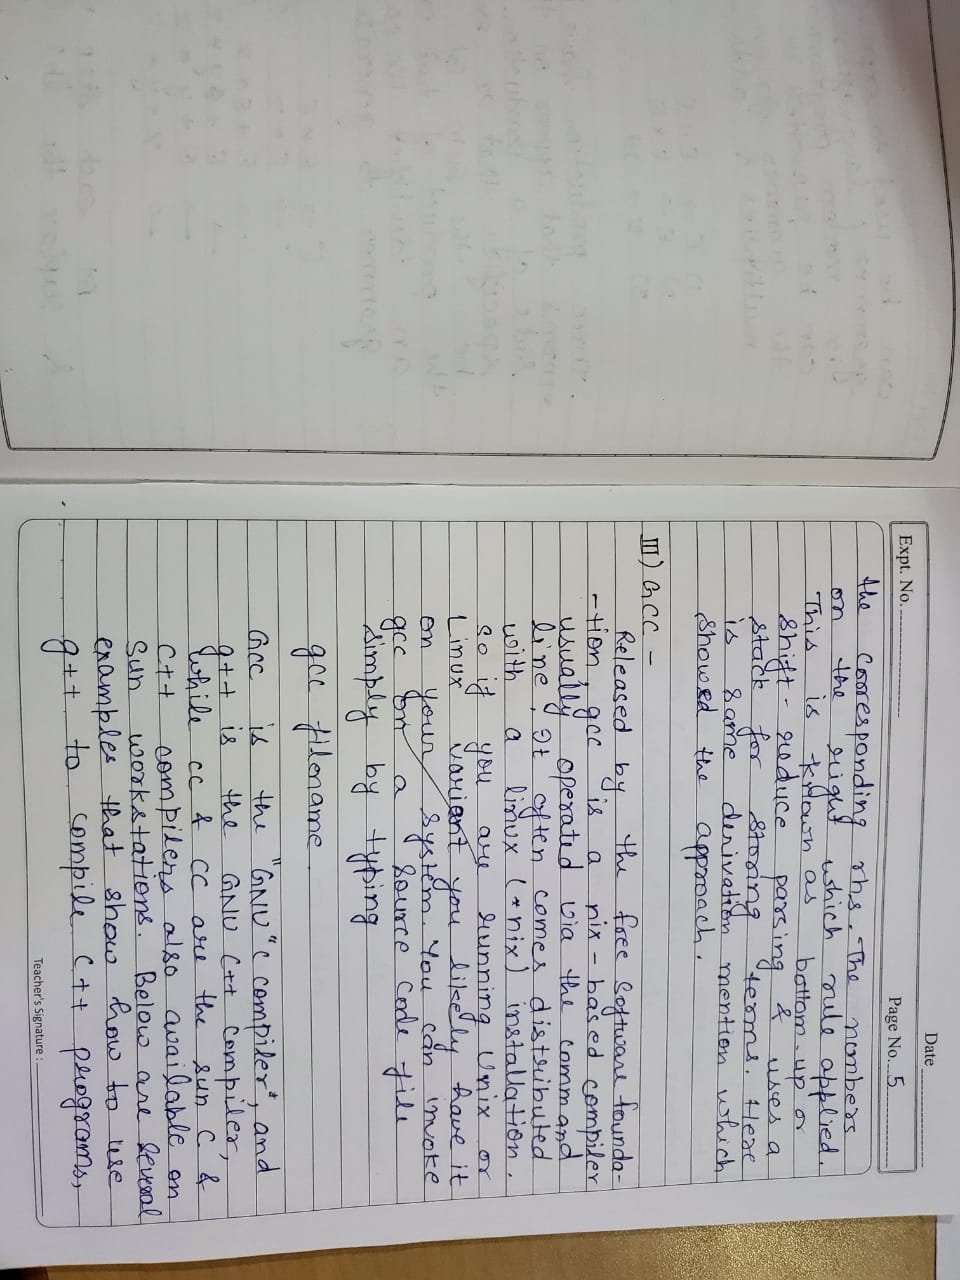 Date
Expt. No.
Page No. 5
the corresponding rhs. The numbers
on the right which rule applied.
This is known as bottom-up or
shift-reduce parsing & uses a
stack for storing terms. Here
is same derivation mention which
showed the approach.
III) GCC -
Released by the free Software founda-
-tion, gcc is a nix-based compiler
usually operated via the command
line, It often comes distributed
with a linux (*nix) installation.
So if you are running Unix or
Linux variant you likely have it
on your system. You can invoke
gcc on a source code file
simply by typing
gcc filename
Gcc is the "GNU" c compiler", and
g++ is the GNU C++ compiler,
while cc & CC are the sun C &
C++ compilers also available on
Sun workstations. Below are several
examples that show how to use
g++ to compile C++ programs,
Teacher's Signature :